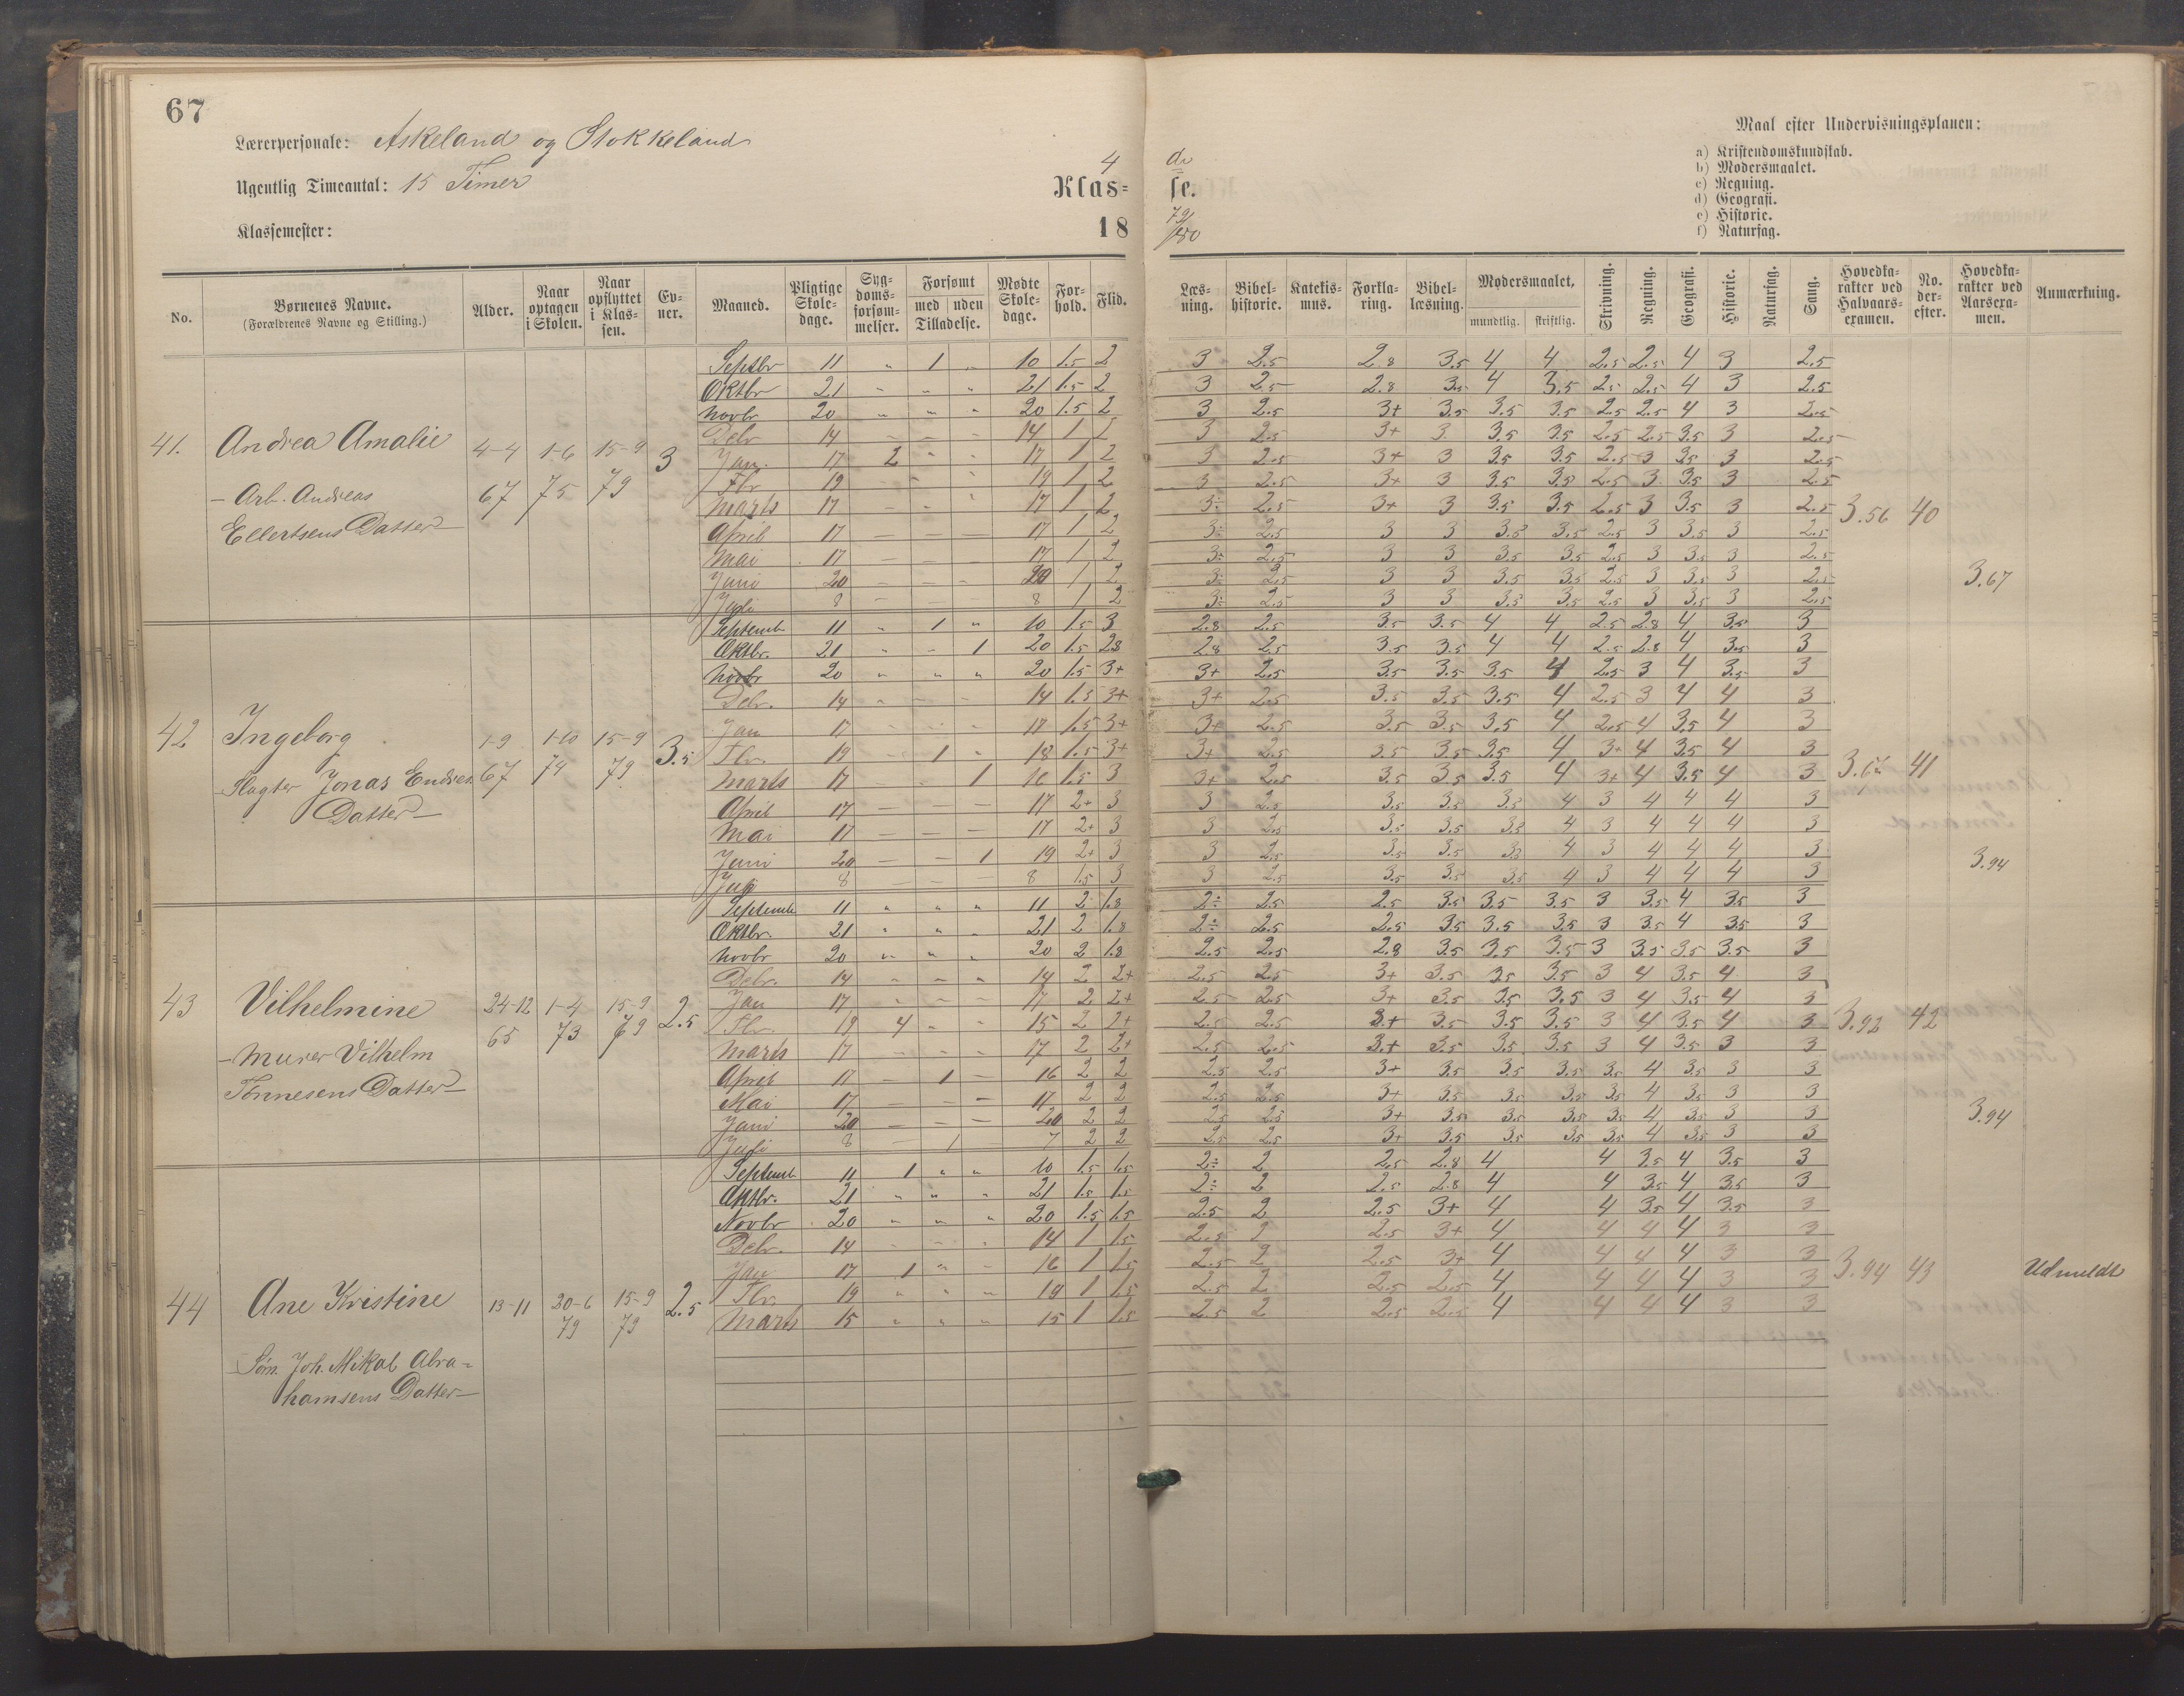 67
Lærerpersonale: Askeland og Stokkeland
Ugentlig Timeantal: 15 Timer
Klassemester:
4 de
Klas= se.
18 79/80
Maal efter Undervisningsplanen:
a) Kristendomskundskab.
b) Modersmaalet.
c) Regning.
d) Geografi.
e) Historie.
f) Naturfag.
No. Børnenes Navne. (Forældrenes Navne og Stilling.) Alder. Naar optagen i Skolen. Naar opflyttet i Klassen. Evner. Maaned. Pligtige Skoledage. Sygdomsforsømmelser. Forsømt med uden Tilladelse. Mødte Skoledage. Forhold. Flid. Læsning. Bibelhistorie. Katekismus. Forklaring. Bibellæsning. Modersmaalet, mundtlig. skriftlig. Skrivning. Regning. Geografi. Historie. Naturfag. Sang. Hovedkarakter ved Halvaarsexamen. No. derefter. Hovedkarakter ved Aarsexamen. Anmærkning.
41. Andrea Amalie
- Arb. Andreas
Ellertsens Datter -
4-4 67 1-6 75 15-9 79 3
Septbr 11 " 1 " 10 1.5 2 3 2.5 2.8 3.5 4 4 2.5 2.5 4 3 2.5
Oktbr 21 " " " 21 1.5 2 3 2.5 2.8 3.5 4 3.5 2.5 2.5 4 3 2.5
Novbr 20 " " " 20 1.5 2 3 2.5 3+ 3.5 3.5 3.5 2.5 2.5 4 3 2.5
Debr 14 - - - 14 1 2 3 2.5 3+ 3 3.5 3.5 2.5 2.5 3.5 3 2.5
Jan. 17 2 " " 17 1 2 3 2.5 3+ 3 3.5 3.5 2.5 3 3.5 3 2.5
Fbr 19 " " " 19 1 2 3 2.5 3+ 3 3.5 3.5 2.5 3 3.5 3 2.5
Marts 17 - - " 17 1 2 3÷ 2.5 3+ 3 3.5 3.5 2.5 3 3.5 3 2.5
April 17 - - - 17 1 2 3÷ 2.5 3 3 3.5 3.5 2.5 3 3.5 3 2.5
Mai 17 - - - 17 1 2 3÷ 2.5 3 3 3.5 3.5 2.5 3 3.5 3 2.5
Juni 20 - - - 20 1 2 3÷ 2.5 3 3 3.5 3.5 2.5 3 3.5 3 2.5
Juli 8 - - - 8 1 2 3÷ 2.5 3 3 3.5 3.5 2.5 3 3.5 3 2.5
3.56 40 3.67
42 Ingeborg
- Slagter Jonas Endres
Datter -
1-9 67 1-10 74 15-9 79 3.5
Septemb. 11 " 1 " 10 1.5 3 2.8 2.5 3.5 3.5 4 4 2.5 2.8 4 3.5 3
Oktbr. 21 " - 1 20 1.5 2.8 2.8 2.5 3.5 3.5 4 4 2.5 2.8 4 3.5 3
Novbr 20 " " " 20 1.5 3+ 3+ 2.5 3.5 3.5 3.5 4 2.5 3 4 3.5 3
Debr. 14 - - - 14 1.5 3+ 3+ 2.5 3.5 3.5 3.5 4 2.5 3 4 4 3
Jan 17 - - - 17 1.5 3+ 3+ 2.5 3.5 3.5 3.5 4 2.5 4 3.5 4 3
Fbr. 19 - 1 " 18 1.5 3+ 3+ 2.5 3.5 3.5 3.5 4 3+ 4 3.5 4 3
Marts 17 - - 1 16 1.5 3 3+ 2.5 3.5 3.5 3.5 4 3+ 4 3.5 4 3
April 17 - - - 17 2+ 3 3 2.5 3.5 3.5 3.5 4 3 4 4 4 3
Mai 17 - - - 17 2+ 3 3 2.5 3.5 3.5 3.5 4 3 4 4 4 3
Juni 20 - - 1 19 2+ 3 3 2.5 3.5 3.5 3.5 4 3 4 4 4 3
Juli 8 - - - 8 1.5 3 3 2.5 3.5 3.5 3.5 4 3 4 4 4 3
41 3.94
43 Vilhelmine
- Murer Vilhelm
Tønnesens Datter -
24-12 65 1-4 73 15-9 79 2.5
Septemb 11 " " " 11 2 1.8 2÷ 2.5 2.5 3.5 3.5 3.5 3 3.5 4 3.5 3
Oktbr. 21 " " " 21 2 1.8 2÷ 2.5 2.5 3.5 3.5 3.5 3 3.5 4 3.5 3
Novbr 20 " " " 20 2 1.8 2.5 2.5 2.8 3.5 3.5 3.5 3 3.5 3.5 3.5 3
Debr. 14 " " " 14 2 2+ 2.5 2.5 3+ 3.5 3.5 3.5 3 4 3.5 4 3
Jan 17 " - - 17 2 2+ 2.5 2.5 3+ 3.5 3.5 3.5 3 4 3.5 4 3
Fbr. 19 4 " " 15 2 2+ 2.5 2.5 3+ 3.5 3.5 3.5 3 4 3.5 4 3
Marts 17 " " " 17 2 2+ 2.5 2.5 3+ 3.5 3.5 3.5 3 4 3.5 3 3
April 17 - 1 - 16 2 2 2.5 2.5 3+ 3.5 3.5 3.5 3.5 4 3.5 3 3
Mai 17 - - - 17 2 2 2.5 2.5 3+ 3.5 3.5 3.5 3.5 4 3.5 3 3
Juni 20 - - - 20 2 2 2.5 2.5 3+ 3.5 3.5 3.5 3.5 4 3.5 3 3
Juli 8 - 1 - 7 2 2 2.5 2.5 3+ 3.5 3.5 3.5 3.5 4 3.5 3 3
3.92 42 3.94
44 Ane Kristine
- Søm. Joh. Mikal Abra=
hamsens Datter -
13-11 20-6 79 15-9 79 2.5
Septemb 11 1 " " 10 1.5 1.5 2÷ 2 2.5 2.8 4 4 3.5 4 3.5 3
Oktbr. 21 " " " 21 1.5 1.5 2÷ 2 2.5 2.8 4 4 3.5 4 3.5 3
Novbr 20 " " " 20 1.5 1.5 2.5 2 2.5 3+ 4 4 3.5 4 3.5 3
Debr. 14 - - - 14 1 1.5 2.5 2 2.5 3+ 4 4 4 4 3 3
Jan 17 1 " - 16 1 1.5 2.5 2 2.5 3+ 4 4 4 4 3 3
Fbr. 19 " " " 19 1 1.5 2.5 2 2.5 2.5 4 4 4 4 3 3
Marts 15 " " " 15 1 1.5 2.5 2 2.5 2.5 4 4 4 4 3 3
3.94 43 Udmeldt